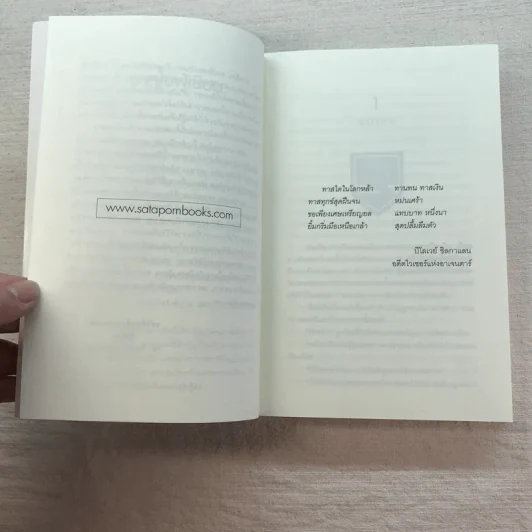 www.satapornbooks.com
ทาสใดในโลกหล้า ทานทน ทาสเงิน
ทาสทุกข์สุดฝืนจน หม่นเศร้า
ขอเพียงเศษเหรียญยล แทบบาท หนึ่งนา
ยิ้มกริ่มมือเหนือเกล้า สุดปลื้มลืมตัว
บีโลเวย์ ซิลกาแดน
อดีตไวเซอร์แห่งอาเจนตาร์